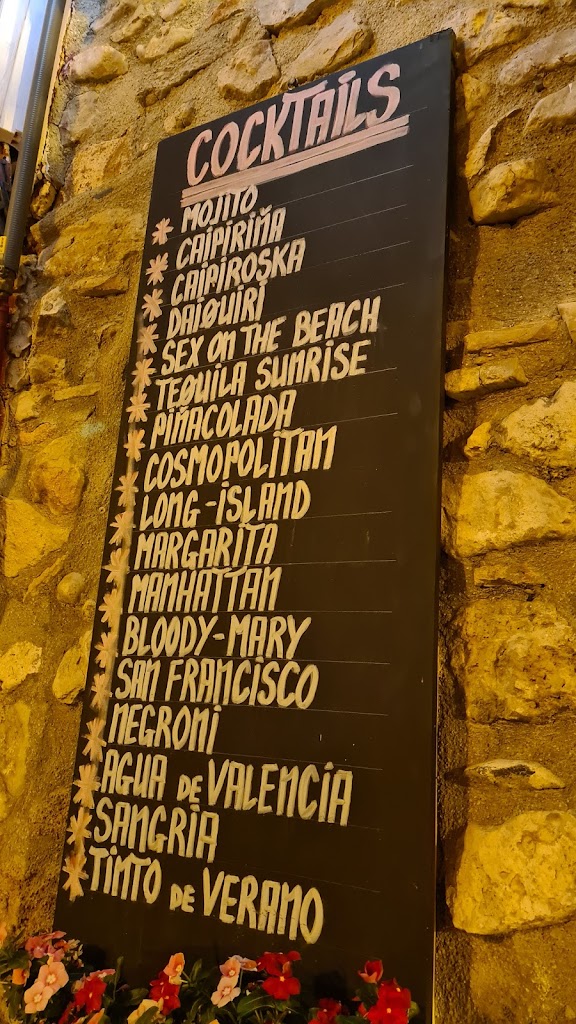 COCKTAILS
MOJITO
CAIPIRIÑA
CAIPIROSKA
DAIQUIRI
SEX ON THE BEACH
TEQUILA SUNRISE
PIÑACOLADA
COSMOPOLITAN
LONG-ISLAND
MARGARITA
MANHATTAN
BLOODY-MARY
SAN FRANCISCO
NEGRONI
AGUA DE VALENCIA
SANGRIA
TINTO DE VERANO